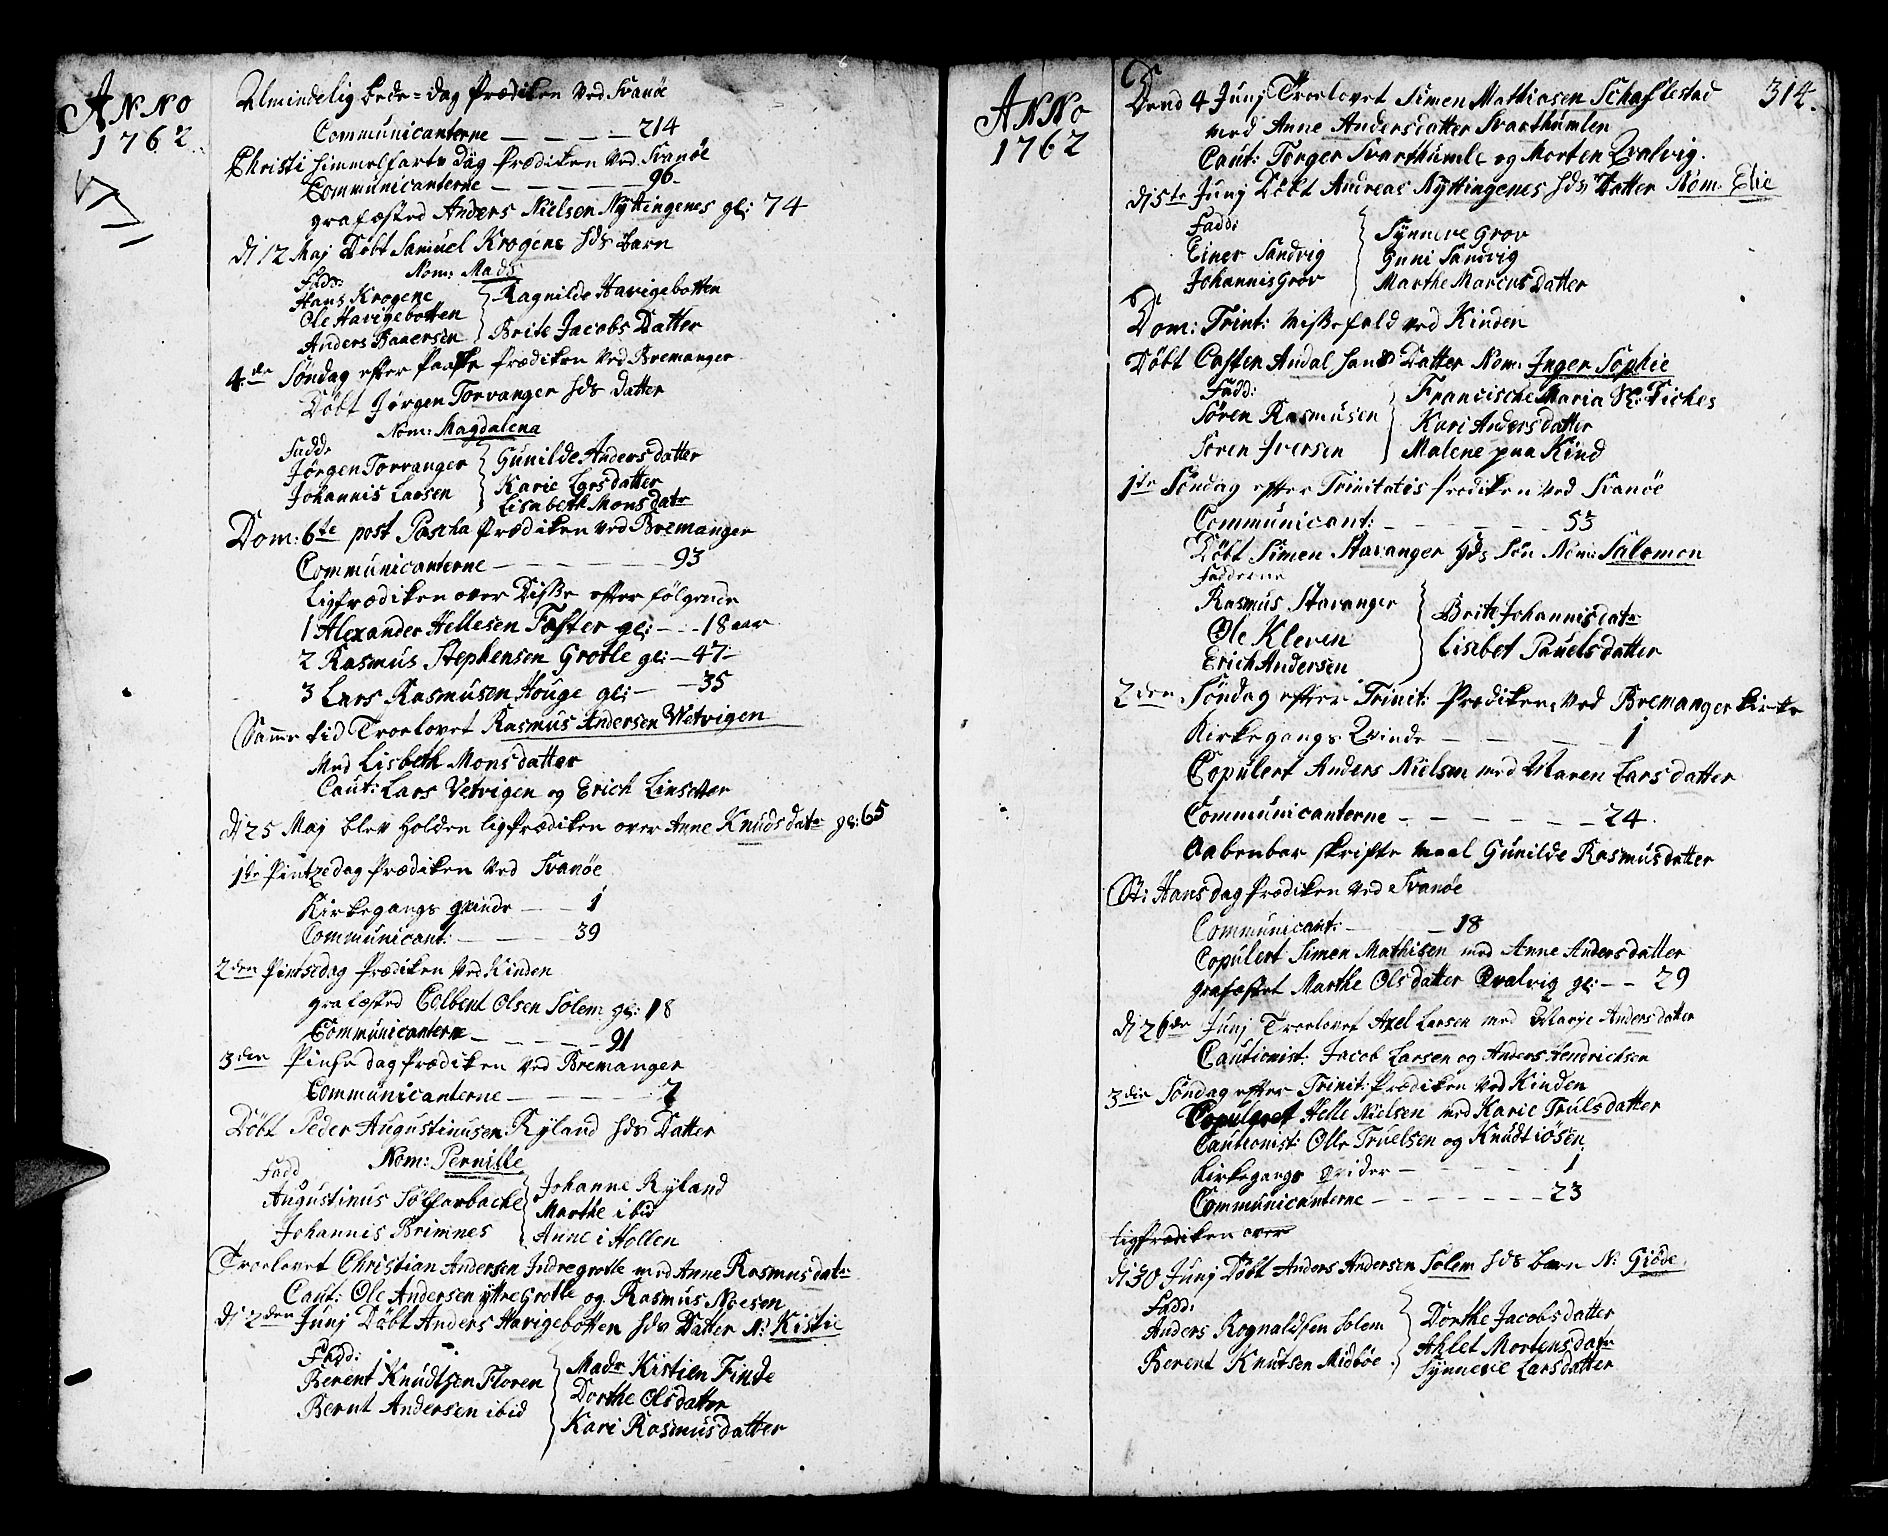 ANNO
1762
Almindelig bede=dag Prædiken ved Svanöe
Communicanterne — — — — 214
Christi himmelfarts dag Prædiken ved Svanöe
Communicanterne — — — — 96
grafæsted Anders Nielsen Nÿttingenes gl: 74
dj 12 Maj Döbt Samuel Krogens hds barn
Nom: Mads
Fadd:
Hans Krogene
Ole Havigebotten
Anders Baaersen
Ragnilde Havigebotten
Brite Jacobs Datter
4de Söndag efter Paaske Prædiken ved Bremanger
Döbt Jörgen Torvanger hds datter
Nom: Magdalena
Fadd:
Jörgen Torvanger
Johannis Larsen
Gunilde Anders datter
Karie Larsdatter
Lisabeth Mons datr
Dom: 6te post Pascha Prædiken ved Bremanger
Communicanterne — — — — 93
Ligprædiken over Disse efter fölgende
1 Alexander Hellesen Föster gl: — 18 aar
2 Rasmus Stephensen Grotle gl: — 47 —
3 Lars Rasmusen Houge gl: — — 35
Samme tid Troelovet Rasmus Andersen Vetvigen
Med Lisbeth Mons datter
Caut: Lars Vetvigen og Erich Linsetter
dj 25 Maj blev holden ligprædiken over Anne Knuds datr gl: 65
1te Pintzedag Prædiken ved Svanöe
Kirkegangs qvinde — — 1
Communicant: — — — 39
2den Pintsedag Prædiken ved Kinden
grafæsted Colbent Olsen Solem gl: 18
Communicanterne — — — — 91
3den Pinse dag Prædiken ved Bremanger
Communicanterne — — — — 7
Döbt Peder Augustinusen Ryland hds Datter
Nom: Pernille
Fadd
Augustinus Sölfarbacke
Johannis Brimnes
Johanne Rÿland
Marthe ibid
Anne i Hollen
Troelovet Christian Andersen Indregrotle med Anne Rasmus datr
Caut: Ole Andersen ÿttre Grotle og Rasmus Noesen
dj 2den Junj Döbt Anders Havigebotten hds Datter N: Kistie
Fadd:
Berent Knudtsen Floren
Bernt Andersen ibid
Madr Kistien Finde
Dorthe Olsdatter
Kari Rasmusdatter
ANNO
1762
314.
Dend 4 Junj Troelovet Simen Mathiasen Schaflestad
med Anne Andersdatter Svarthumlen
Caut: Torger Svarthumle og Morten Qvalvig.
dj 5te Junj Döbt Andreas Nÿttingenes hds Datter Nom: Elie
Fadd:
Einer Sandvig
Johannis Grov
Sÿnneve Grov
Guni Sandvig
Marthe Marcus datter
Dom: Trint: Missefald ved Kinden
Döbt Casten Andal hans Datter Nom: Inger Sophie
Fadd:
Sören Rasmusen
Sören Iversen
Francische Maria Sl: Fiches
Kari Andersdatter
Malene paa Kind
1te Söndag efter Trinitatis Prædiken ved Svanöe
Communicant: — — — — 53
Döbt Simen Stavanger hds Sön Nom: Salomon
Fadderne
Rasmus Stavanger
Ole Kleven
Erich Andersen
Brite Johannisdatr
Lisebet Pauels datter
2den Söndag efter Trinit: Prædiken ved Bremanger kirke
Kirkegangs Qvinde — — — — 1
Copulert Anders Nielsen med Maren Lars datter
Communicanterne — — — — 24
Aabenbar skrifte maal Gunilde Rasmusdatter
St: Hans dag Prædiken ved Svanöe
Communicant: — — — 18
Copulert Simen Mathisen med Anne Andersdatter
grafæstet Marthe Olsdatter Qvalvig gl: — — 29
dj 26de Junj Troelovet Axel Larsen med Marje Andersdatter
Cautionist: Jacob Larsen og Anders Hendrichsen
3die Söndag efter Trinit: Prædiken ved Kinden
Copuleret Helle Nielsen med Karie Trulsdatter
Cautionist: Olle Truelsen og Knudt iösen
Kirkegangs qvider — — — — 1
Communicanterne — — — — 23
Ligprædiken over
dj 30 Junj Döbt Anders Andersen Solem hds barn N: Giöde
Fadd:
Anders Rognaldsen Solem
Berent Knutsen Midböe
Dorthe Jacobsdatter
Ahlet Mortensdatr
Sÿnneve Larsdatter